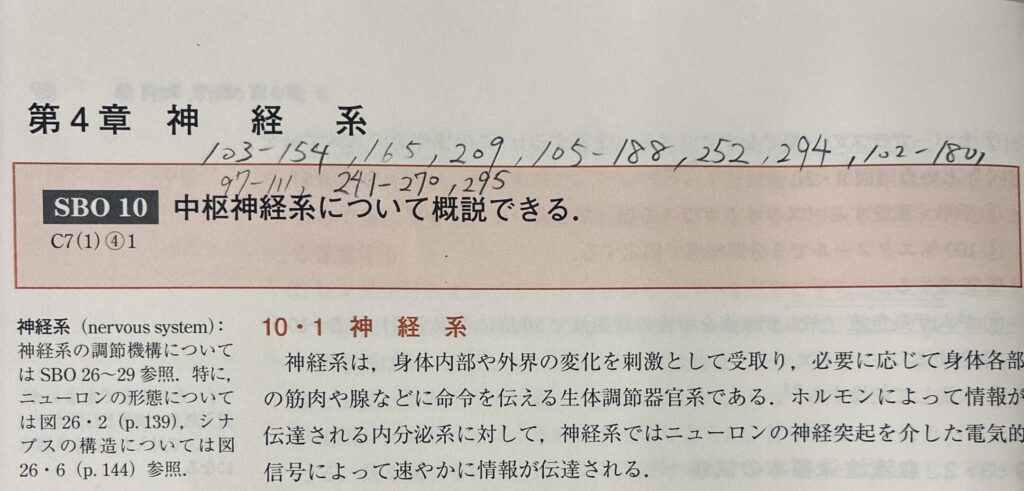 第4章 神経系
103-154, 165, 209, 105-188, 252, 294, 102-180,
97-111, 241-270, 295
SBO 10 中枢神経系について概説できる.
C7(1)④1
神経系 (nervous system):
神経系の調節機構について
は SBO 26〜29 参照. 特に,
ニューロンの形態について
は図 26・2 (p. 139), シナ
プスの構造については図
26・6 (p. 144) 参照.
10・1 神経系
神経系は, 身体内部や外界の変化を刺激として受取り, 必要に応じて身体各部
の筋肉や腺などに命令を伝える生体調節器官系である. ホルモンによって情報が
伝達される内分泌系に対して, 神経系ではニューロンの神経突起を介した電気的
信号によって速やかに情報が伝達される.